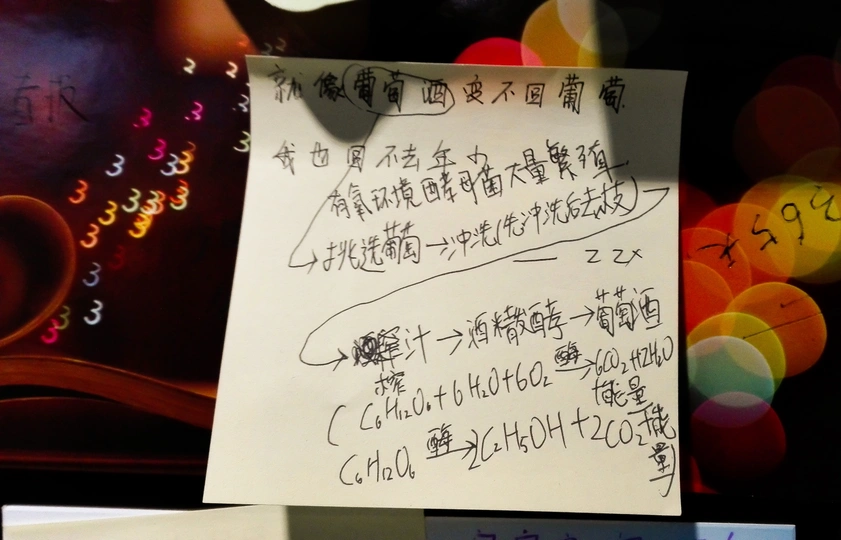 就像葡萄酒变不回葡萄
我也回不去年少
有氧环境酵母菌大量繁殖
→挑选葡萄→冲洗(先冲洗后去枝)→
— ZZX
→榨汁→酒精发酵→葡萄酒
榨
(C₆H₁₂O₆+6H₂O+6O₂ 酶→6CO₂+12H₂O
+能量
C₆H₁₂O₆ 酶→2C₂H₅OH+2CO₂+能
量)